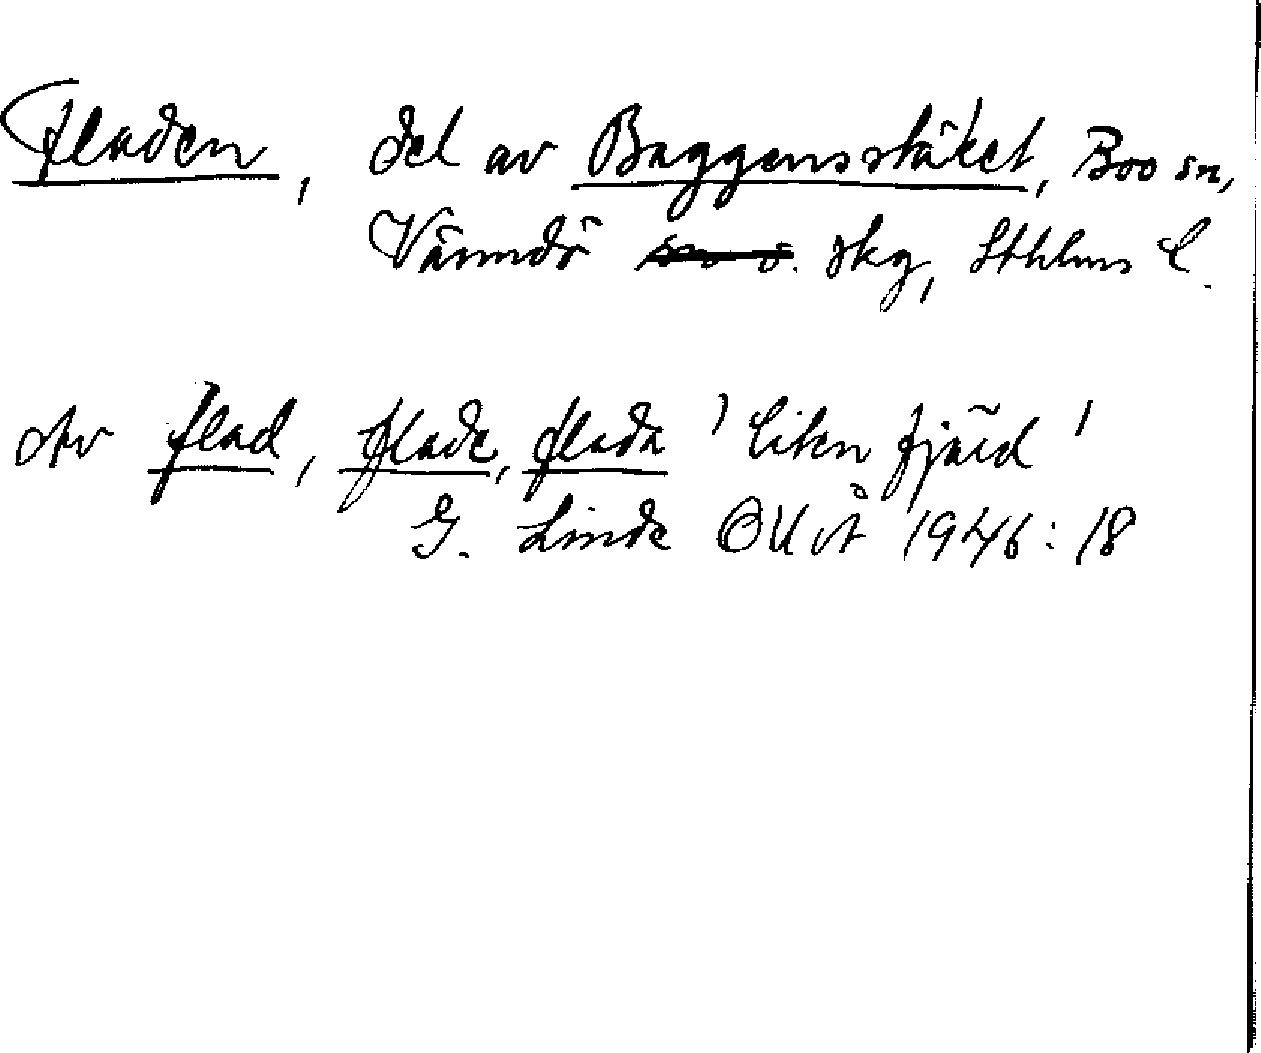 Fladen, del av Baggensstäket, Boo sn,
Värmdö skg, Sthlms l.
Av flad, flade, flada 'liten fjärd'
G. Linde OUÅ 1946:18